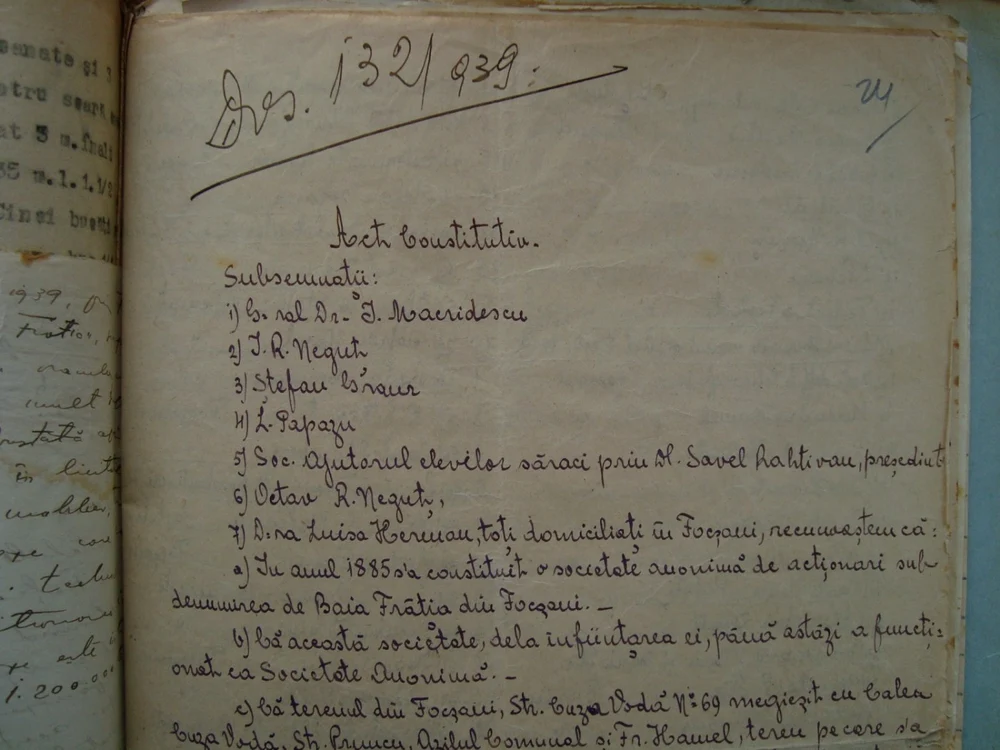 Dos. 132/939:
24
Act Constitutiv.
Subsemnații:
1) G-ral Dr. I. Macridescu
2) I. R. Neguț
3) Stefan Graur
4) L. Papazu
5) Soc. Ajutorul elevilor săraci prin Dl. Savel Rahtivan, președinte
6) Octav R. Neguț,
7) D-na Luisa Herman, toți domiciliați în Focșani, recunoaștem că:
a) In anul 1885 s'a constituit o societate anonimă de acționari sub
denumirea de Baia Frăția din Focșani. —
b) Că această societate, dela înființarea ei, până astăzi a functi=
onat ca Societate Anonimă. —
c) Că terenul din Focșani, Str. Cuza Vodă No 69 megieșit cu Calea
Cuza Vodă, Str. Pruncu, Azilul Comunal și Fr. Hamel, teren pe care s'a
șamate și 3
at 3 m.
35 m.l. 1.1/2
Cinci
1939,
în
este
1.200.000